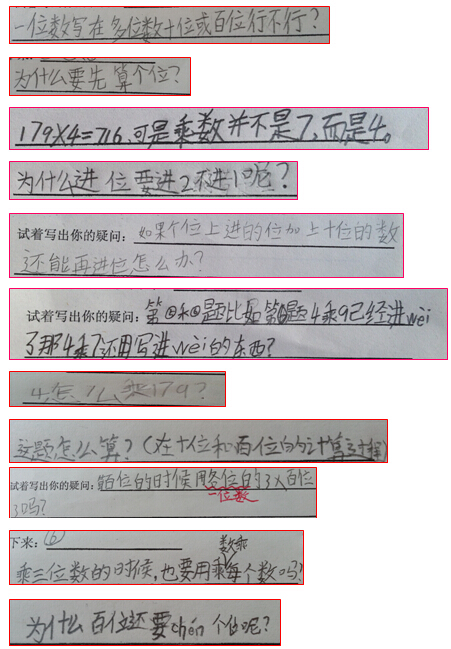 一位数写在多位数十位或百位行不行?
为什么要先算个位?
179×4=716,可是乘数并不是7,而是4。
为什么进位要进2不进1呢?
试着写出你的疑问:如果个位上进的位加上十位的数
还能再进位怎么办?
试着写出你的疑问:第②和③题比如第②题4乘9已经进wèi
了那4乘7还用写进wèi的东西?
4怎么乘179?
这题怎么算?(在十位和百位的计算过程)
试着写出你的疑问:百位的时候用各位的3×百位
一位数
吗?
下来:
数乘
乘三位数的时候,也要用乘每个数吗?
为什么百位还要chén个位呢?